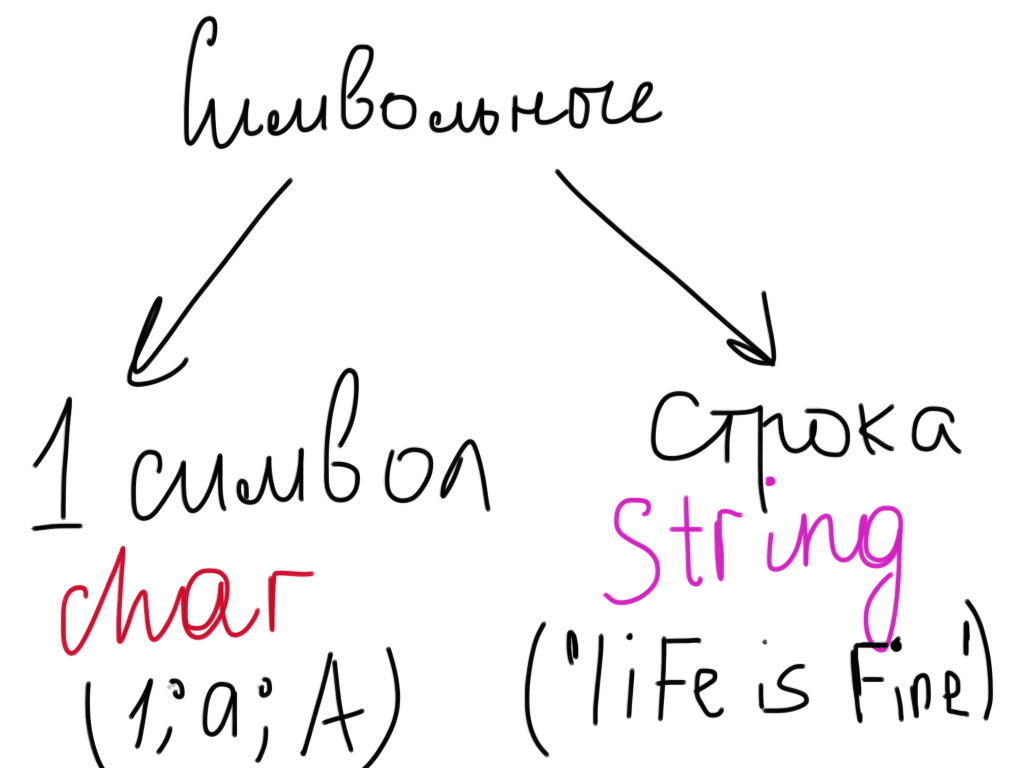 Символьные
1 символ
char
(1; a; A)
Строка
String
('life is Fine')